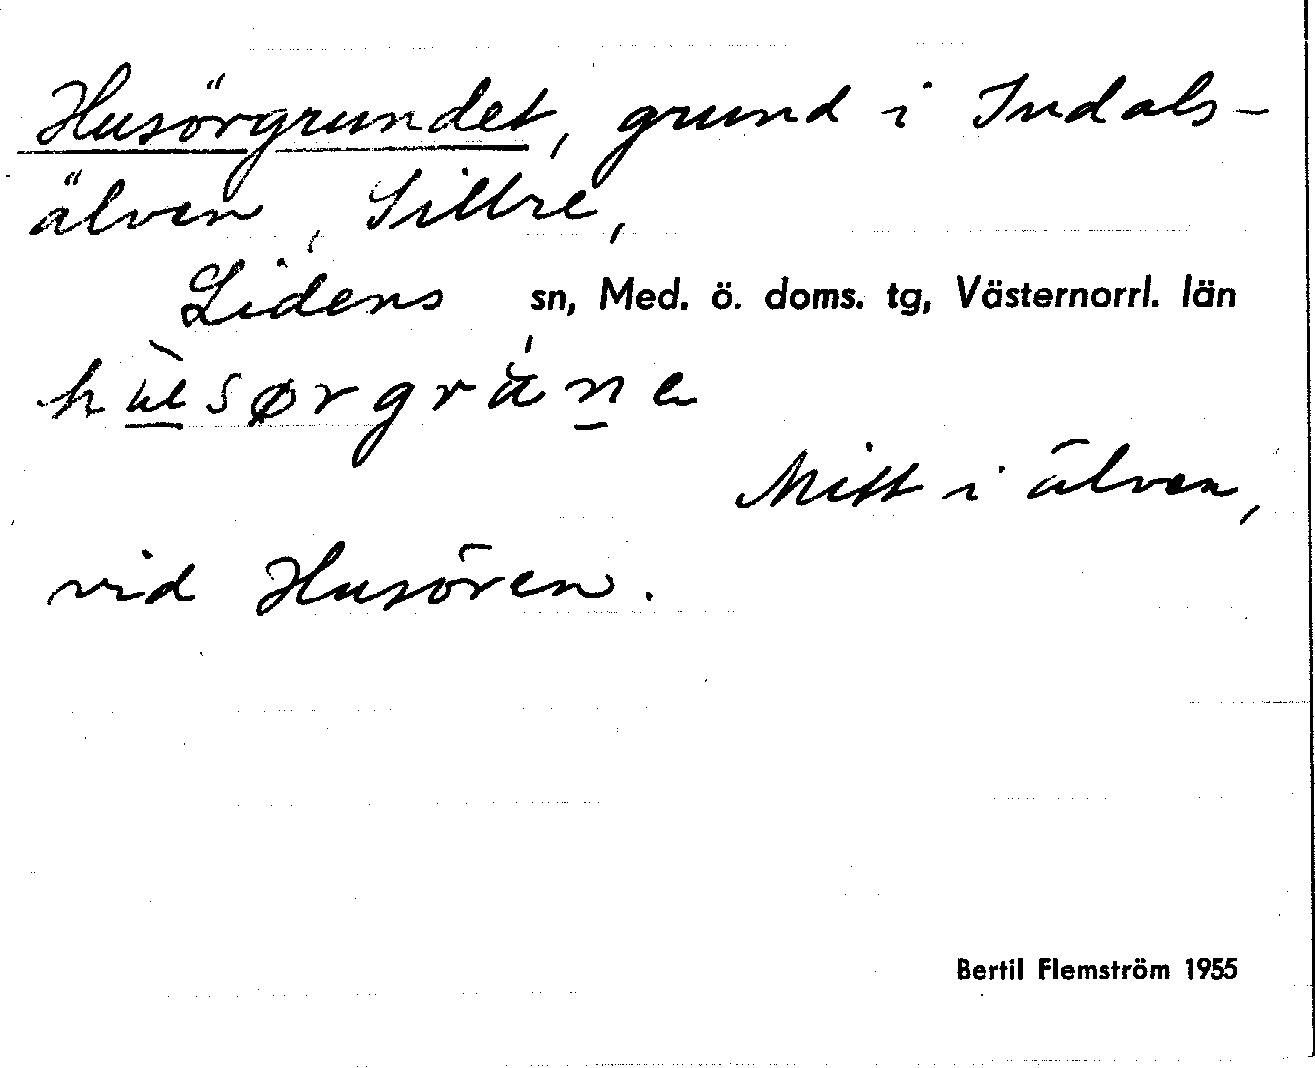 Husörgrundet, grund i Indals-
älven, Sillre,
Lidens sn, Med. ö. doms. tg, Västernorrl. län
hùsørgráne
Mitt i älven,
vid Husören.
Bertil Flemström 1955